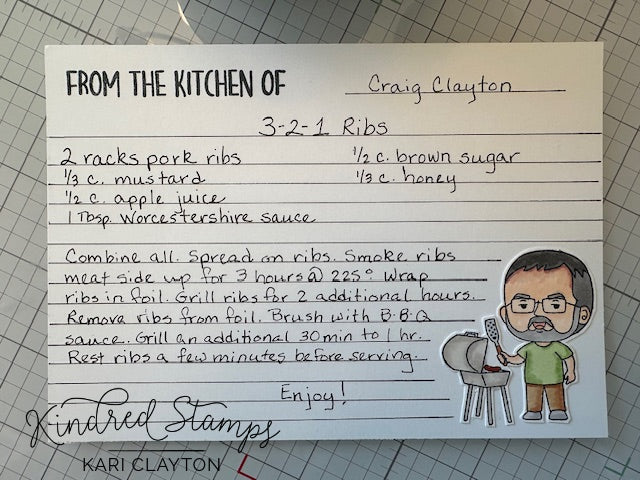 FROM THE KITCHEN OF Craig Clayton
3-2-1 Ribs
2 racks pork ribs 1/2 c. brown sugar
1/3 c. mustard 1/3 c. honey
1/2 c. apple juice
1 Tbsp. Worcestershire sauce
Combine all. Spread on ribs. Smoke ribs
meat side up for 3 hours @ 225°. Wrap
ribs in foil. Grill ribs for 2 additional hours.
Remove ribs from foil. Brush with B·B·Q
sauce. Grill an additional 30 min to 1 hr.
Rest ribs a few minutes before serving.
Enjoy!
Kindred Stamps
KARI CLAYTON